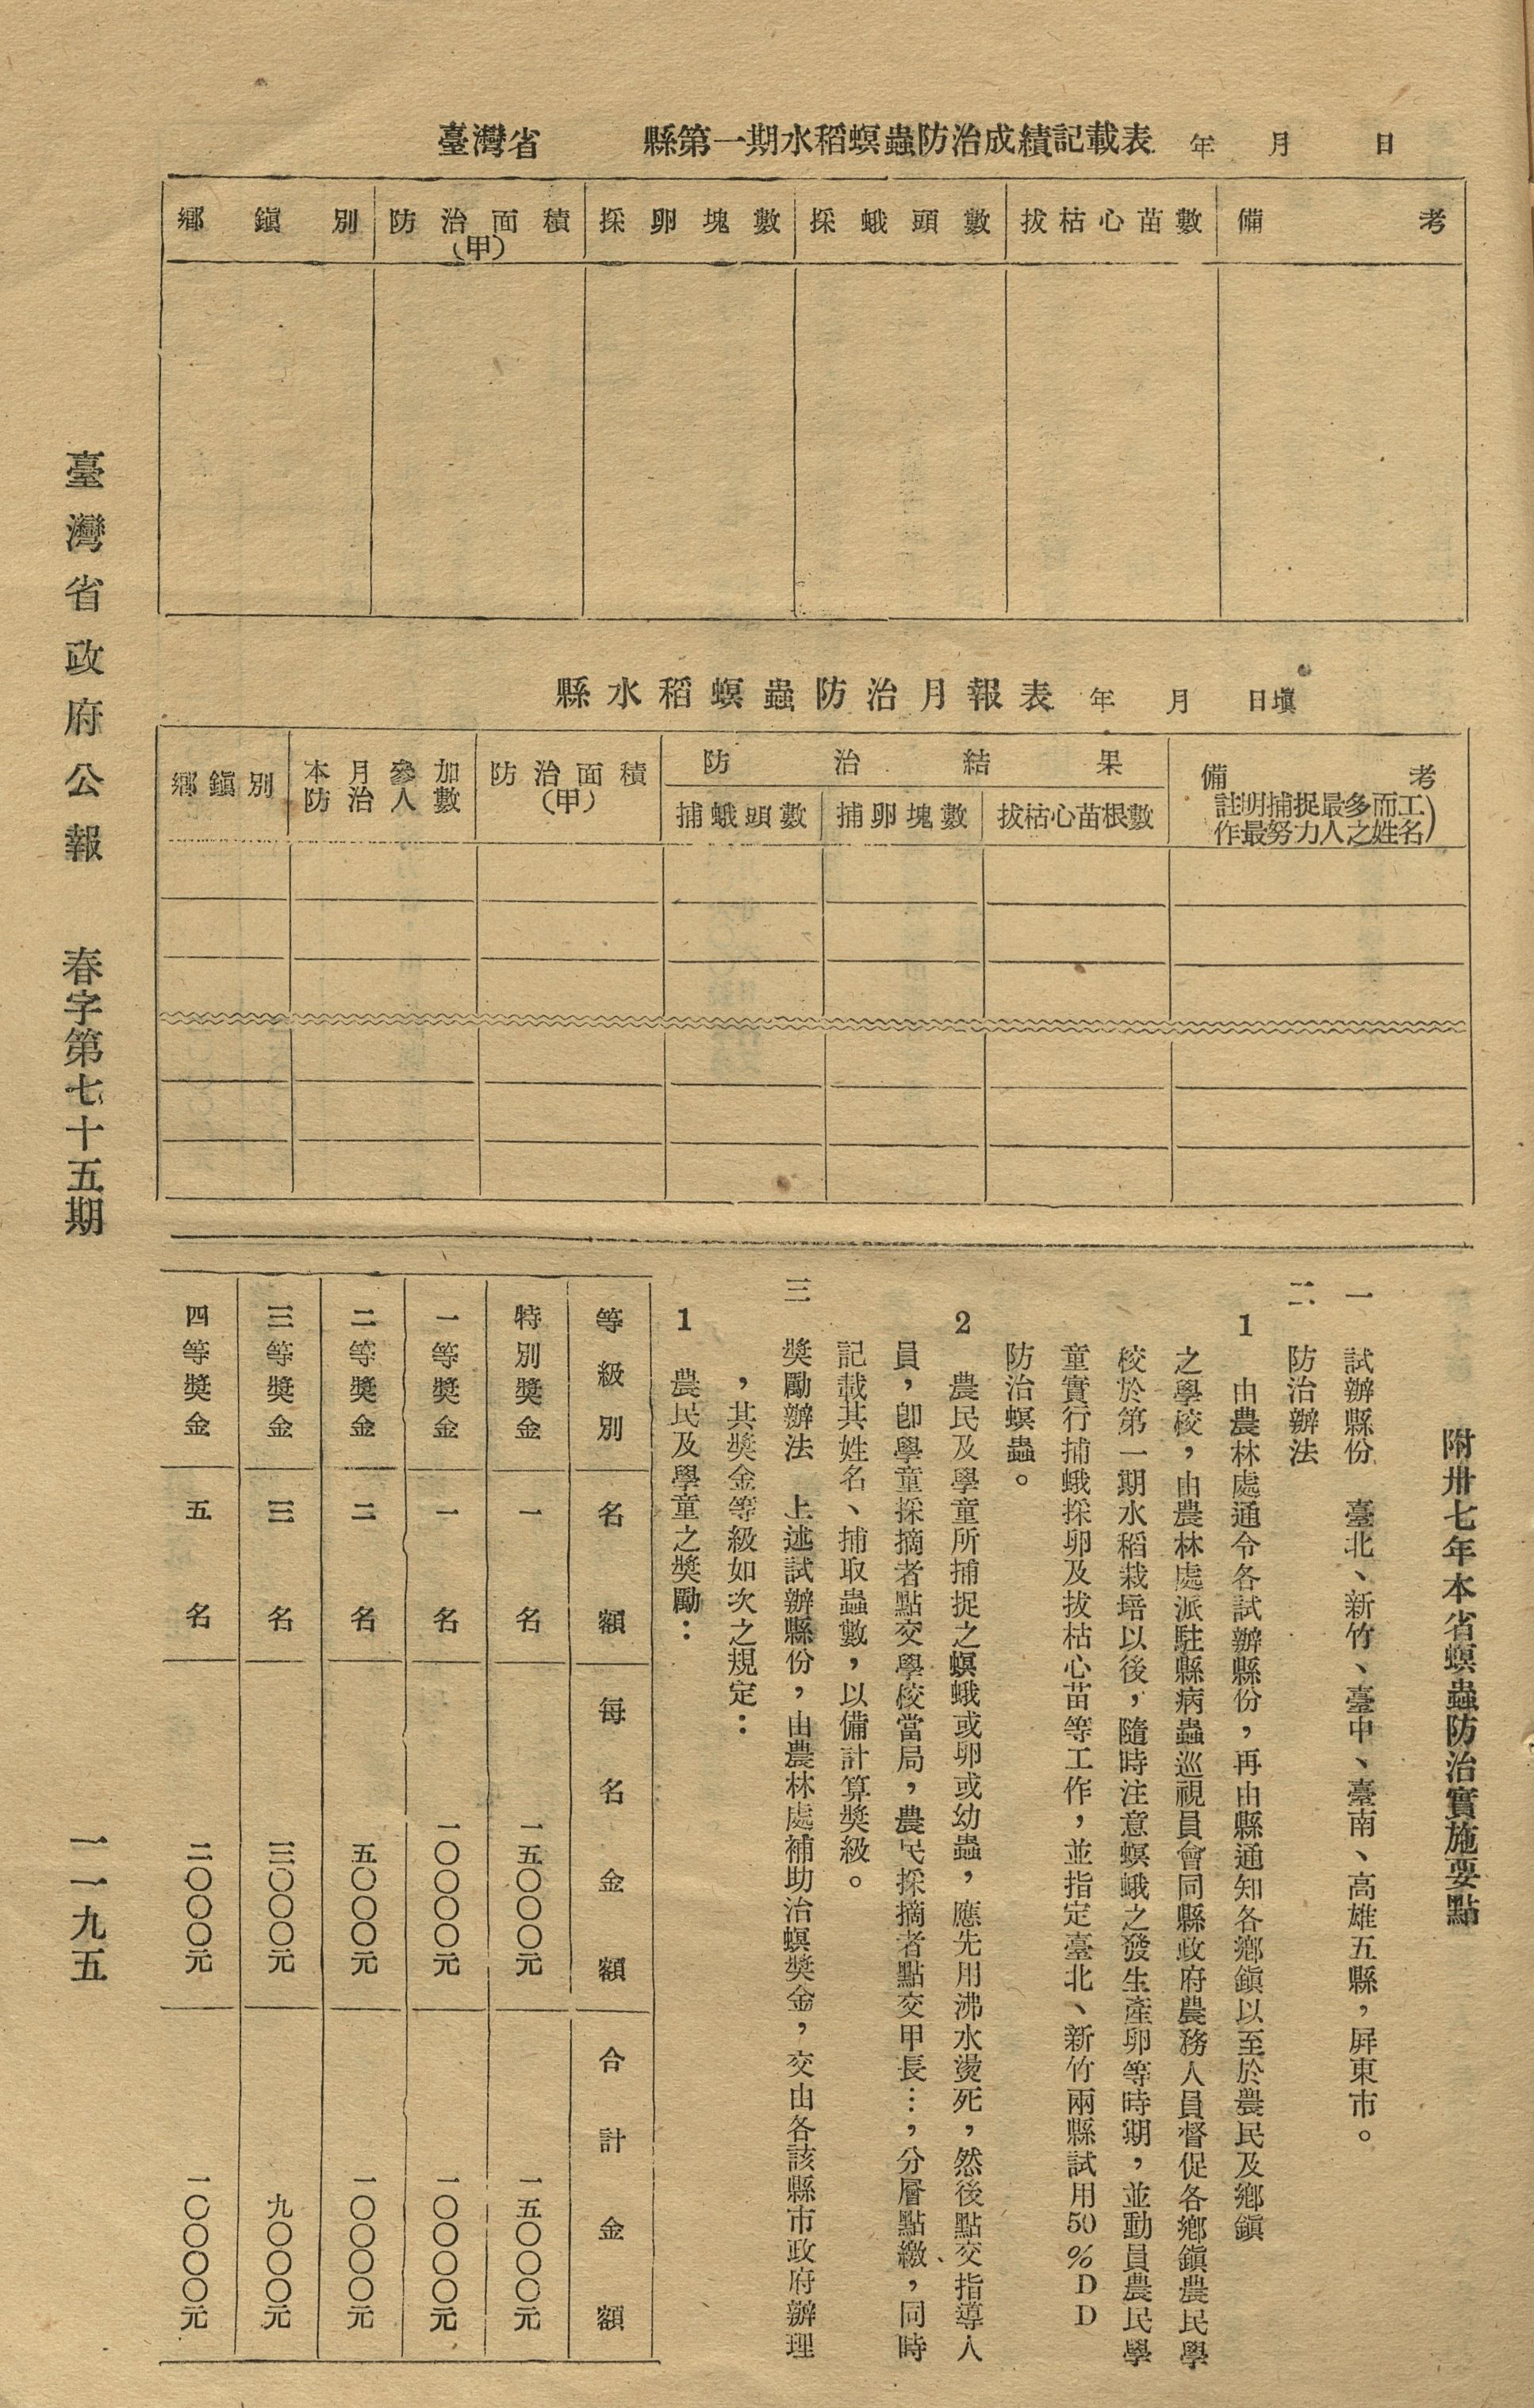 臺灣省　　縣第一期水稻螟蟲防治成績記載表　年　月　日
鄉鎭別　防治面積(甲)　採卵塊數　採蛾頭數　拔枯心苗數　備考
縣水稻螟蟲防治月報表　年　月　日塡
鄉鎭別　本月參加防治人數　防治面積(甲)　防治結果　備考
捕蛾頭數　捕卵塊數　拔枯心苗根數　註明捕捉最多而工作最努力人之姓名)
附卅七年本省螟蟲防治實施要點
一　試辦縣份　臺北、新竹、臺中、臺南、高雄五縣，屛東市。
二　防治辦法
1　由農林處通令各試辦縣份，再由縣通知各鄉鎭以至於農民及鄉鎭
之學校，由農林處派駐縣病蟲巡視員會同縣政府農務人員督促各鄉鎭農民學
校於第一期水稻栽培以後，隨時注意螟蛾之發生產卵等時期，並動員農民學
童實行捕蛾採卵及拔枯心苗等工作，並指定臺北、新竹兩縣試用50%DD
防治螟蟲。
2　農民及學童所捕捉之螟蛾或卵或幼蟲，應先用沸水燙死，然後點交指導人
員，卽學童採摘者點交學校當局，農民採摘者點交甲長…，分層點繳，同時
記載其姓名、捕取蟲數，以備計算獎級。
三　獎勵辦法　上述試辦縣份，由農林處補助治螟獎金，交由各該縣市政府辦理
，其獎金等級如次之規定：
1　農民及學童之獎勵：
等級別　名額　每名金額　合計金額
特別獎金　一名　一五〇〇〇元　一五〇〇〇元
一等獎金　一名　一〇〇〇〇元　一〇〇〇〇元
二等獎金　二名　五〇〇〇元　一〇〇〇〇元
三等獎金　三名　三〇〇〇元　九〇〇〇元
四等獎金　五名　二〇〇〇元　一〇〇〇〇元
臺灣省政府公報　春字第七十五期
一一九五